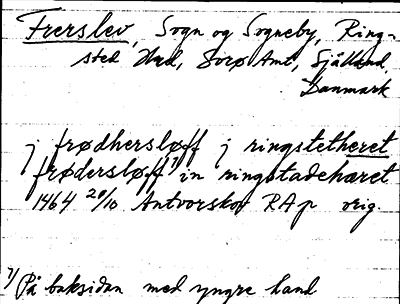 Frerslev, Sogn og Sogneby, Ring-
sted Hrd, Sorø Amt, Sjælland,
Danmark
j frødhersløff j ringstetheret
frødersløff 1) in ringstadehæret
1464 20/10 Antvorskov RAp orig.
1) På baksidan med yngre hand